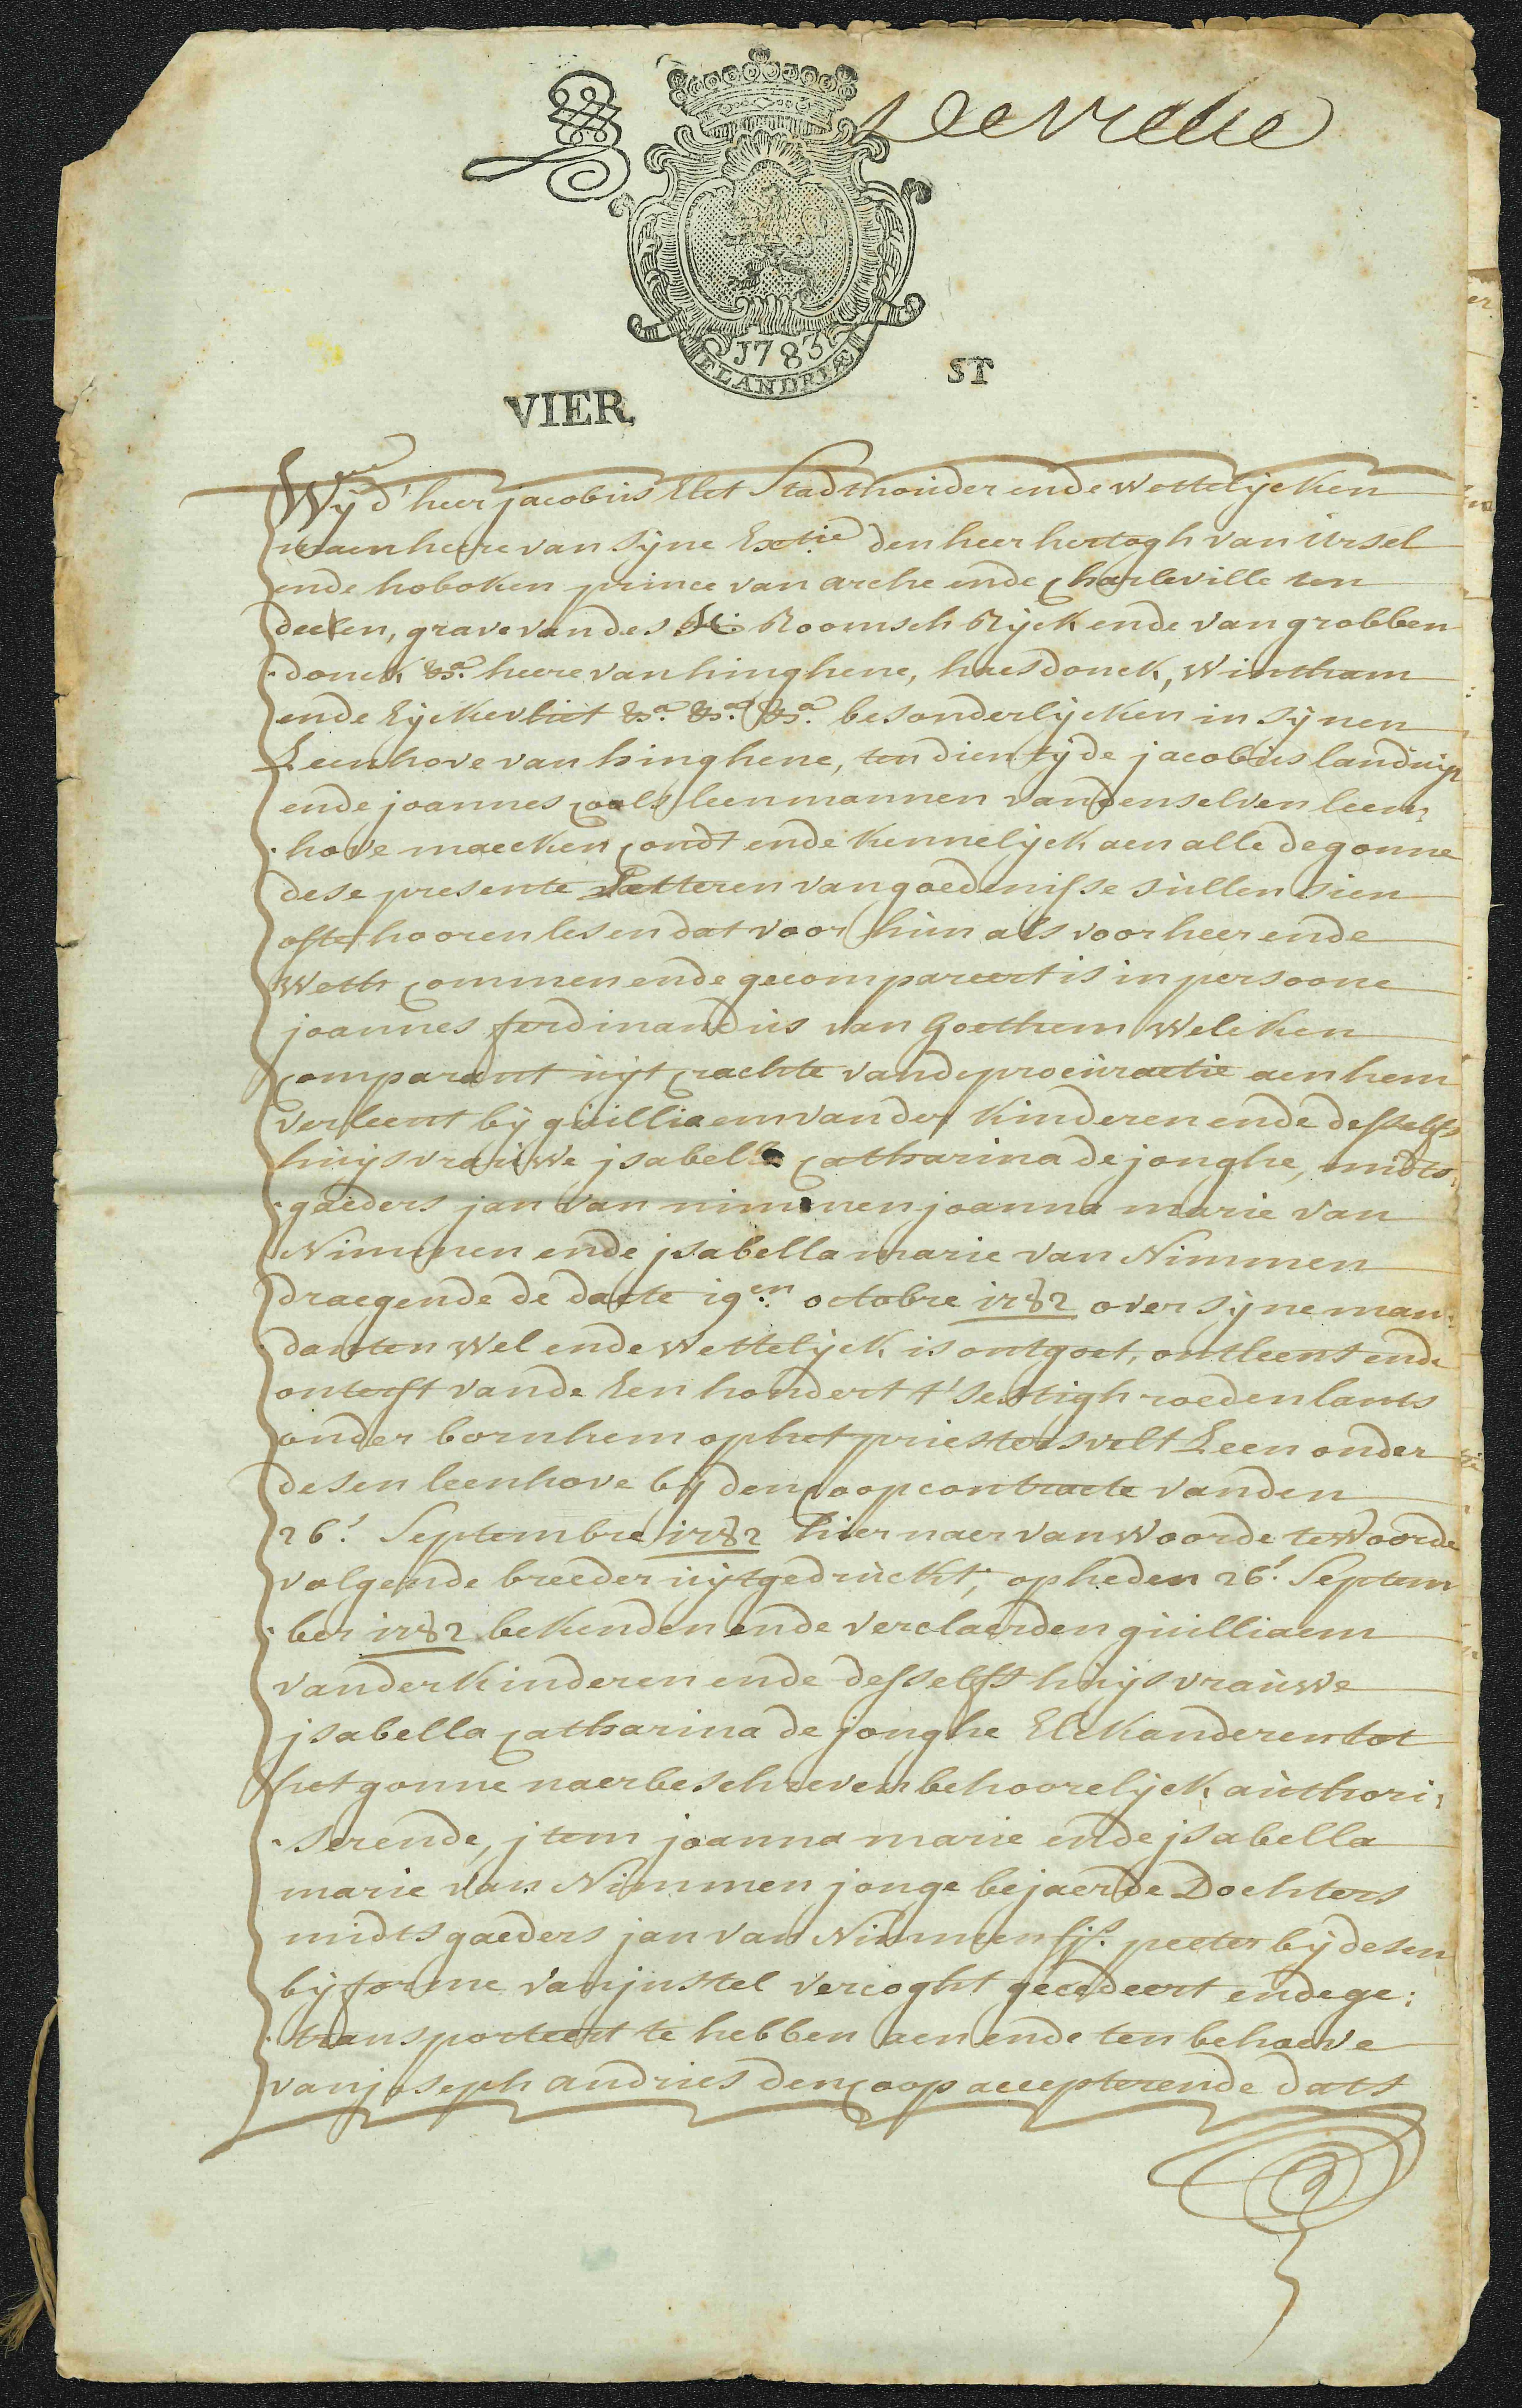 1783
FLANDRIÆ
VIER.
ST
Wÿ d'heer jacobus Elet Stadthouder ende wettelÿcken
maenheere van sÿne Extie den heer hertogh van ursel
ende hoboken prince van arche ende charleville ten
deelen, grave van des H: Roomsch Rÿck ende van grobben
donck &a. heere van hinghene, haesdonck, Wintham
ende Eÿckevliet &a. &a. &a. besonderlÿcken in sÿnen
Leenhove van hinghene, ten dien tÿde jacobus landuÿt
ende joannes cools leenmannen vandenselven leen:
:hove maecken condt ende kennelÿck aen alle degonne
dese presente Letteren van goedenisse sullen sien
ofte hooren lesen dat voor hun als voor heer ende
Weth commen ende gecompareert is in persoone
joannes ferdinandus van Goethem Welcken
comparant uÿt crachte vande procuractie aen hem
verleent bÿ guilliaem vander Kinderen ende desselfs
huÿsvrauwe jsabella catharina de jonghe, midts:
:gaeders jan van nimmen joanna marie van
Nimmen ende jsabella marie van Nimmen
draegende de daete 19en. octobre 1782 over sÿne man:
danten wel ende Wettelÿck is ontgoet, ontleent ende
onterft vande Een hondert t'sestigh roeden lants
onder bornhem op het priestersvelt Leen onder
desen leenhove bÿ den coopcontracte vanden
26.' Septembre 1782 hier naer van Woorde te Woorde
volgende breeder uÿtgedruckt; op heden 26.' Septem
:ber 1782 bekenden ende verclaerden guilliaem
vander Kinderen ende desselfs huÿsvrauwe
jsabella catharina de jonghe Elckanderen tot
het gonne naerbeschreven behoorelÿck authori:
:serende, jtem joanna marie ende jsabella
marie van Nimmen jonge bejaerde Dochters
midtsgaeders jan van Nimmen fs. peeter bÿ desen
bÿ forme van jnstel vercoght gecedeert ende ge:
:transporteert te hebben aen ende ten behoeve
van joseph andries den coop accepterende dats